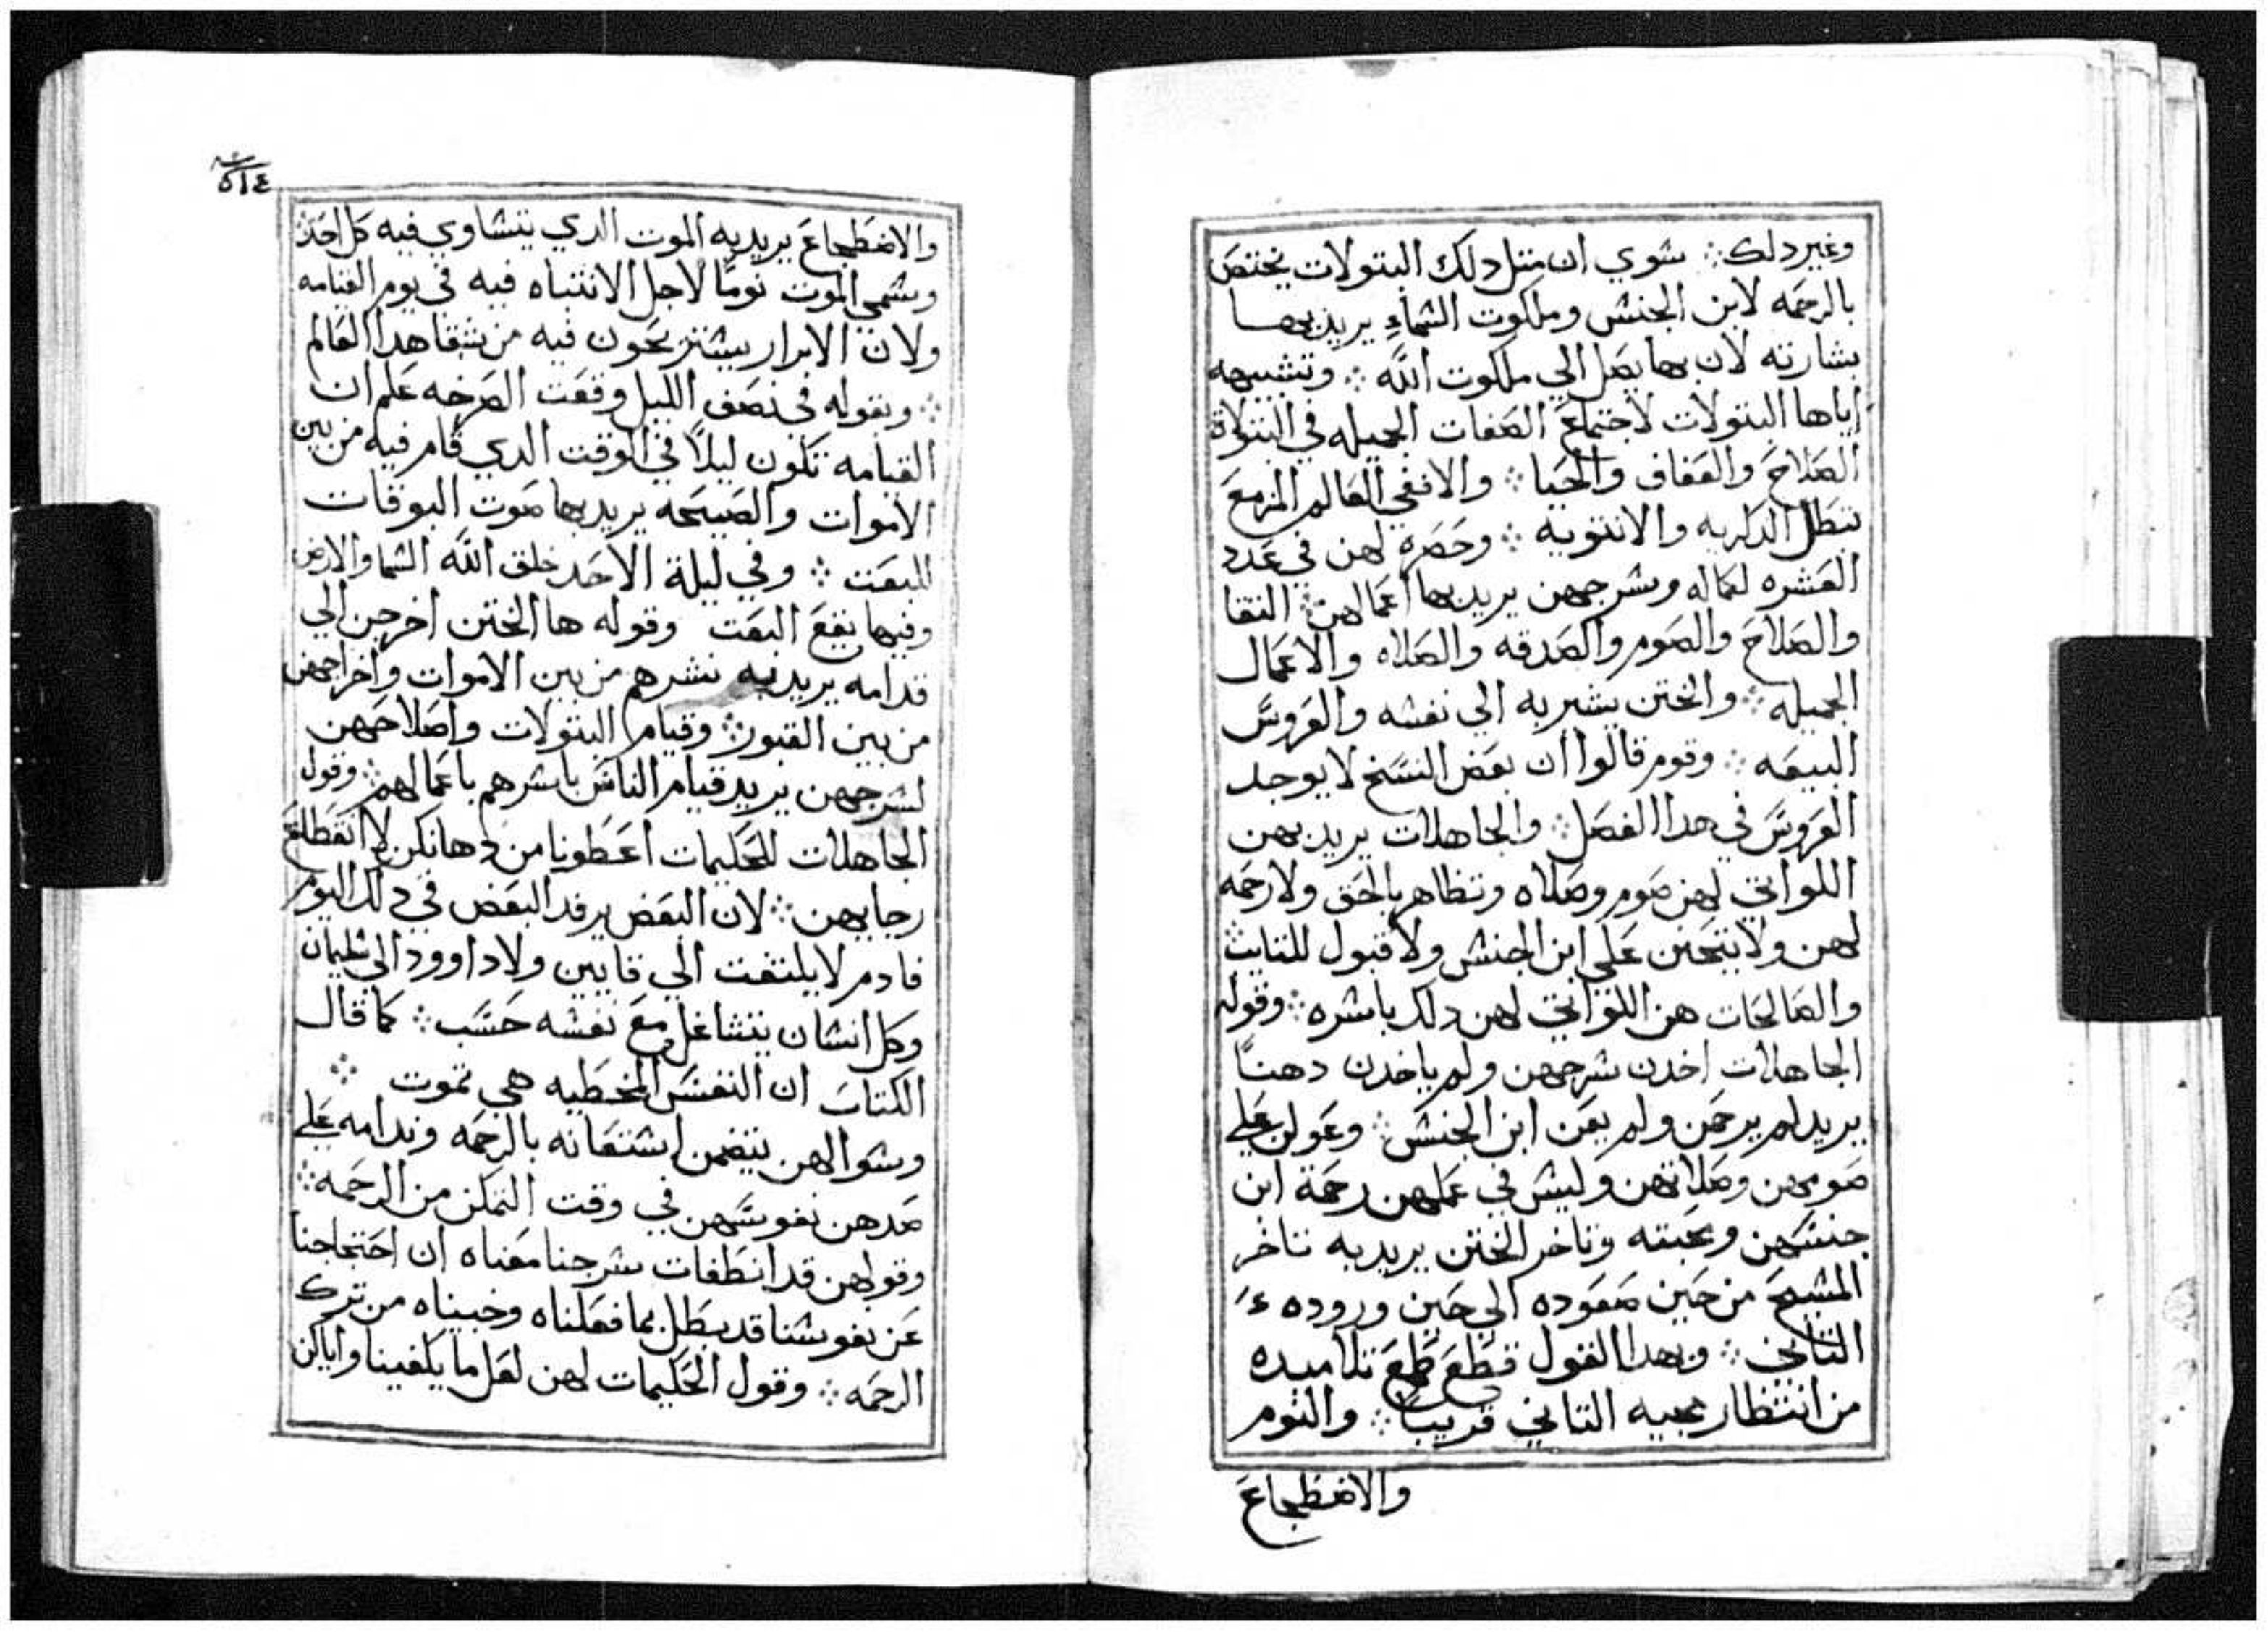 وغير دلك ⁘ سوي ان متل دلك البتولات يختص
بالرحمه لابن الجنس وملكوت السماء يريد بها
بشارته لان بها يصل الي ملكوت الله ⁘ وتشبيهه
اياها البتولات لاجتماع الصفات الجميله في البتولة
الصلاح والعفاف والحيا ⁘ والا ففي العالم المزمع
تبطل الدكريه والانتويه ⁘ وحصره لهن في عدد
العشره لكماله وسرجهن يريد بها اعمالهن ⁘ النقا
والصلاح والصوم والصدقه والصلاه والاعمال
الجميله ⁘ والختن يشير به الي نفسه والعروس
البيعه ⁘ وقوم قالوا ان بعض النسخ لا يوجد
العروس في هدا الفصل ⁘ والجاهلات يريد بهن
اللواتي لهن صوم وصلاه وتظاهر بالحق ولا رحمه
لهن ولا يتحنن علي ابن الجنس ولا قبول للتايب
والصالحات هن اللواتي لهن دلك باسره ⁘ وقوله
الجاهلات اخدن سرجهن ولم ياخدن دهنًا
يريد لم يرحمن ولم يعن ابن الجنس ⁘ وعولن علي
صومهن وصلاتهن وليس في عملهن رحمة ابن
جنسهن ومحبته وتاخر الختن يريد به تاخر
المسيح من حين صعوده الي حين وروده
التاني ⁘ وبهدا القول قطع طمع تلاميده
من انتظار مجيه التاني قريبًا ⁘ والنوم
والاضطجاع
٥١٤
والاضطجاع يريد به الموت الدي يتساوي فيه كل احد
ويسمي الموت نومًا لاجل الانتباه فيه في يوم القيامه
ولان الابرار يستريحون فيه من شقا هدا العالم
⁘ وبقوله في نصف الليل وقعت الصرخه علم ان
القيامه تكون ليلاً في الوقت الدي قام فيه من بين
الاموات والصيحه يريد بها صوت البوقات
للبعت ⁘ وفي ليلة الاحد خلق الله السما والارض
وفيها يقع البعت وقوله ها الختن اخرجن الي
قدامه يريد به نشرهم من بين الاموات واخراجهن
من بين القبور ⁘ وقيام البتولات واصلاحهن
لسرجهن يريد قيام الناس باسرهم باعمالهم ⁘ وقول
الجاهلات للحكيمات اعطونا من دهانكن لانقطاع
رجايهن ⁘ لان البعض يرفد البعض في دلك اليوم
فادم لا يلتفت الي قايين ولا داوود الي سليمان
وكل انسان يتشاغل مع نفسه حسب ⁘ كما قال
الكتاب ان النفس المخطيه هي تموت ⁘
وسوالهن يتضمن استغاثه بالرحمه وندامه علي
صدهن نفوسهن في وقت التمكن من الرحمه ⁘
وقولهن قد انطفات سرجنا معناه ان احتجاجنا
عن نفوسنا قد بطل بما فعلناه وخبيناه من ترك
الرحمه ⁘ وقول الحكيمات لهن لعل ما يكفينا واياكن